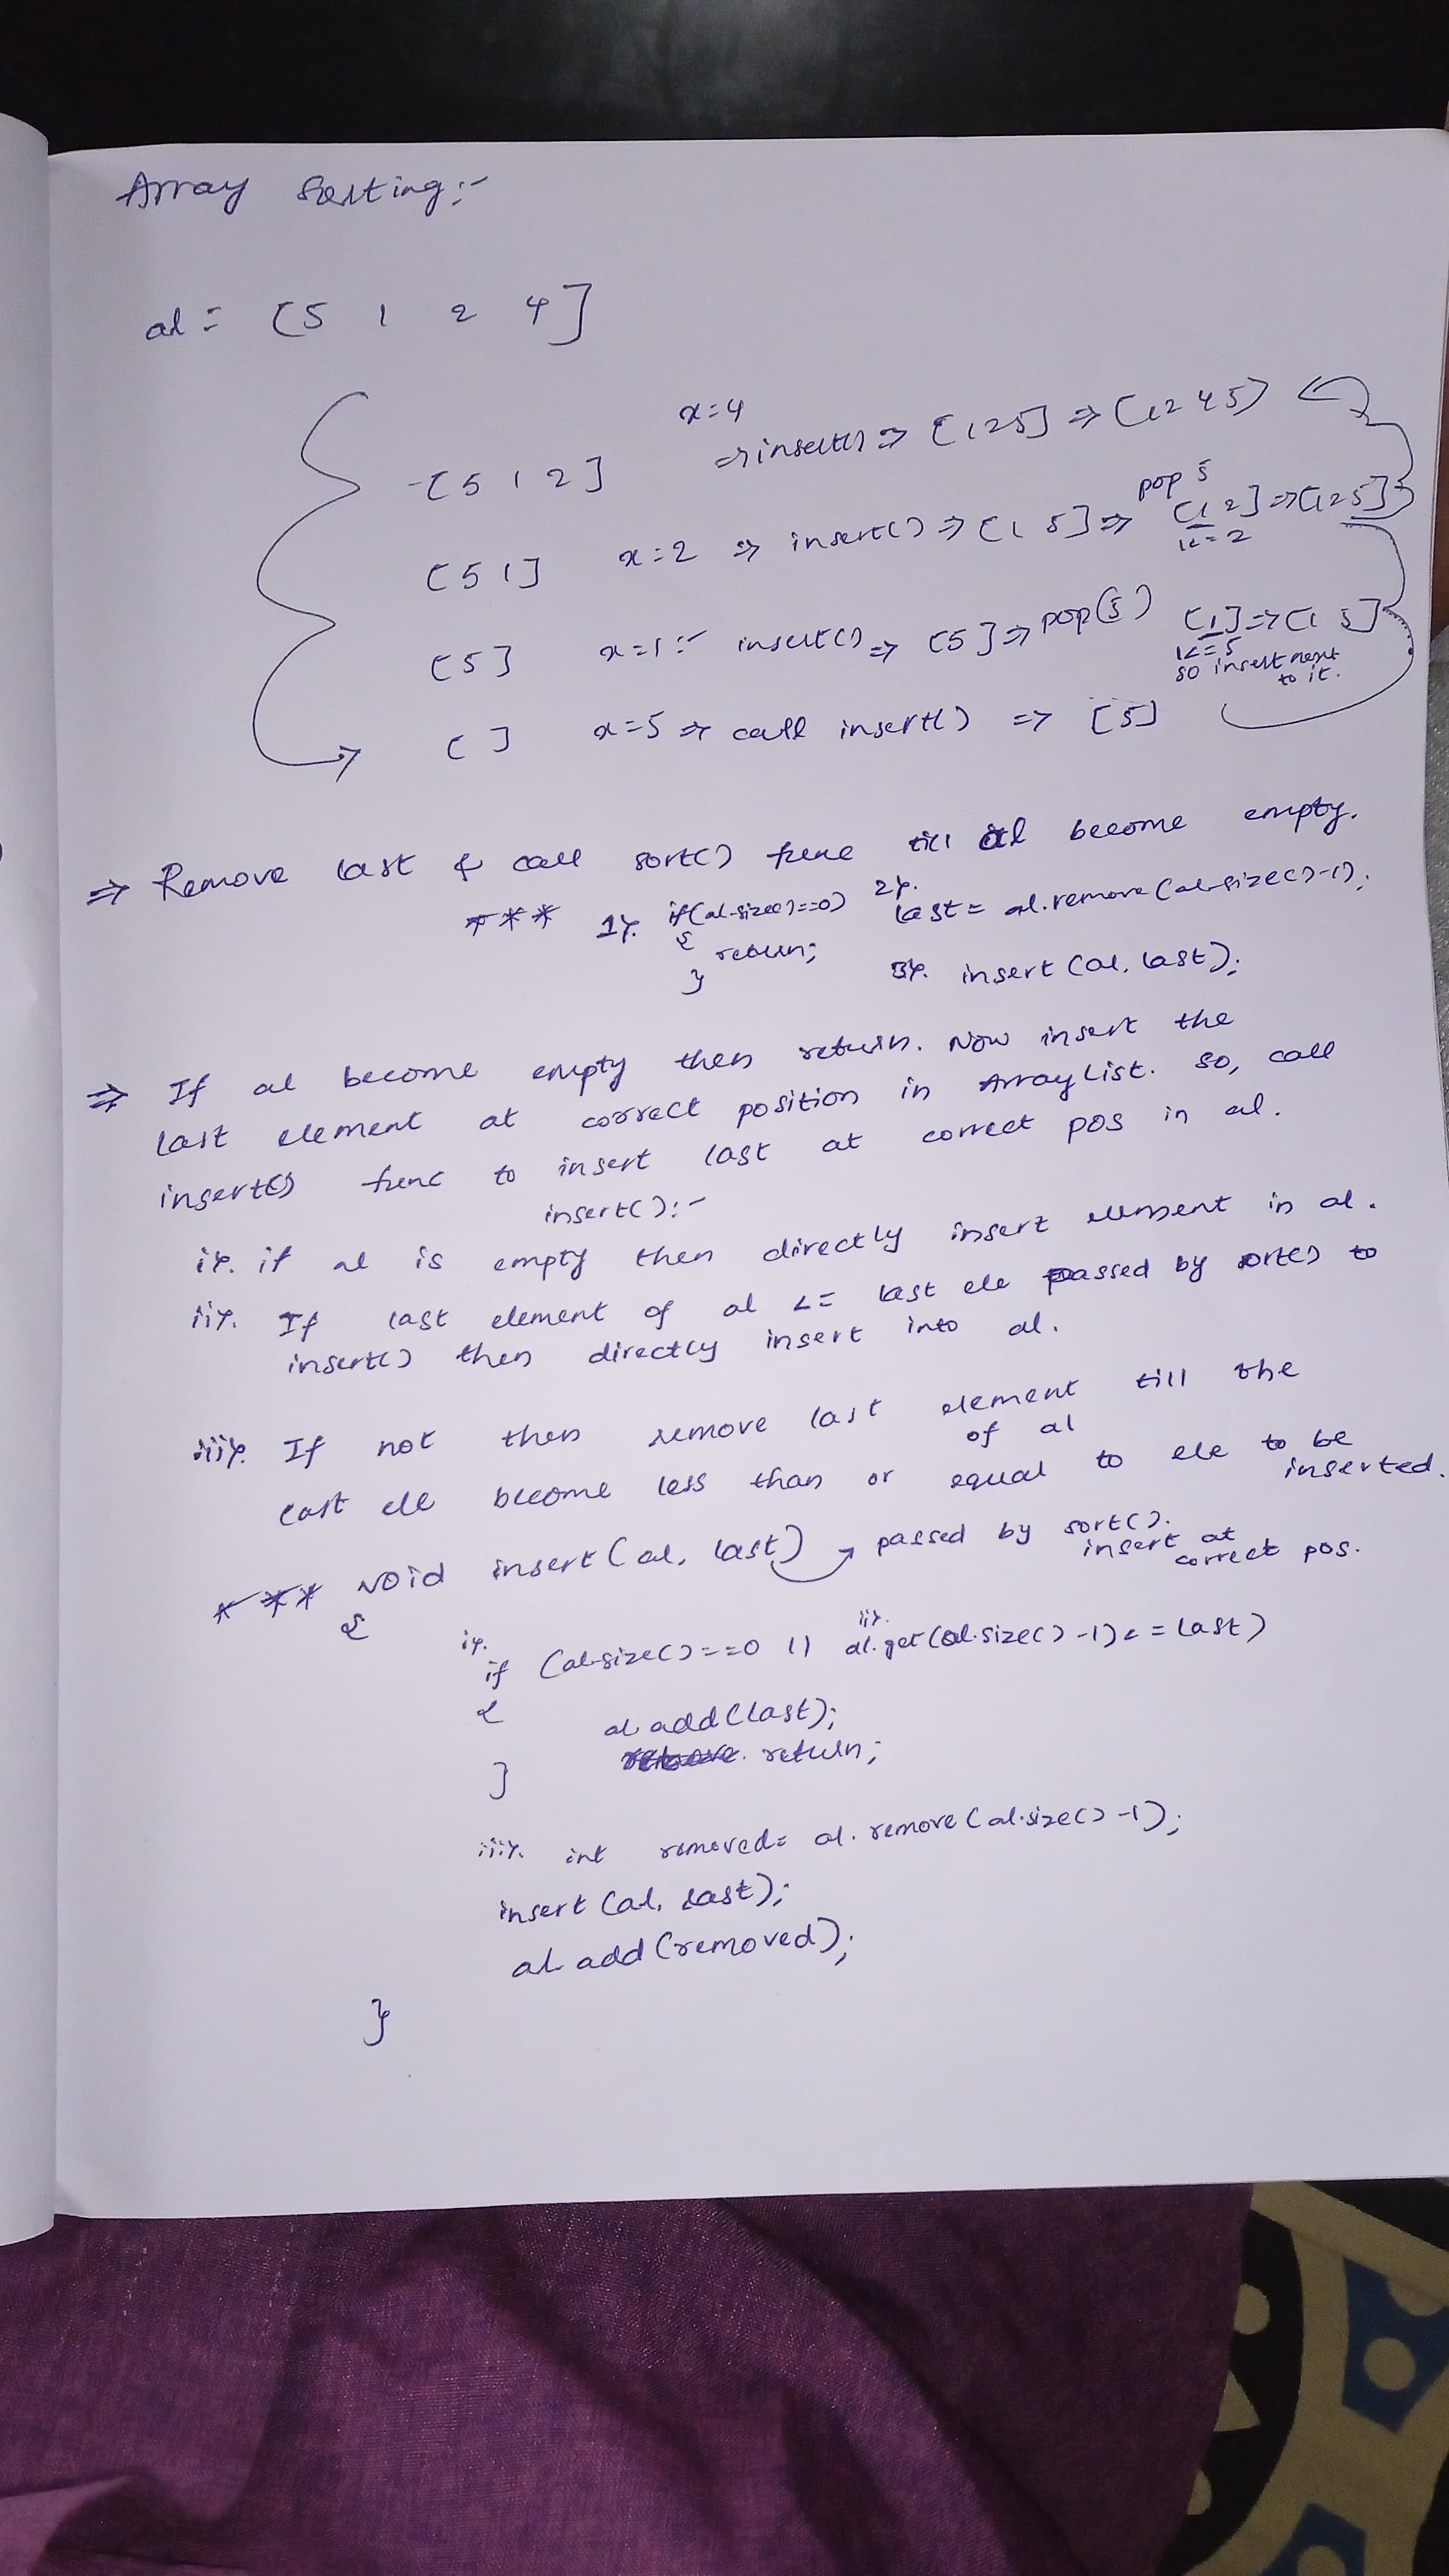 Array Sorting:-
al = [5 1 2 4]
x=4
[5 1 2] => insert() => [1 2 5] => [1 2 4 5]
pop 5
[5 1] x=2 => insert() => [1 5] => [1 2] => [1 2 5]
1<=2
[5] x=1:- insert() => [5] => pop(5) [1] => [1 5]
1<=5
so insert next
to it.
[ ] x=5 => call insert() => [5]
=> Remove last & call sort() func till al become empty.
*** 1). if(al.size()==0) 2). last = al.remove(al.size()-1);
{
return;
} 3). insert(al, last);
=> If al become empty then return. Now insert the
last element at correct position in ArrayList. so, call
insert() func to insert last at correct pos in al.
insert():-
i). if al is empty then directly insert element in al.
ii). If last element of al <= last ele passed by sort() to
insert() then directly insert into al.
iii). If not then remove last element till the
of al
last ele become less than or equal to ele to be
inserted.
*** void insert(al, last) passed by sort().
insert at
correct pos.
{
i). ii).
if (al.size()==0 || al.get(al.size()-1)<=last)
{
al.add(last);
return;
}
iii). int removed = al.remove(al.size()-1);
insert(al, last);
al.add(removed);
}